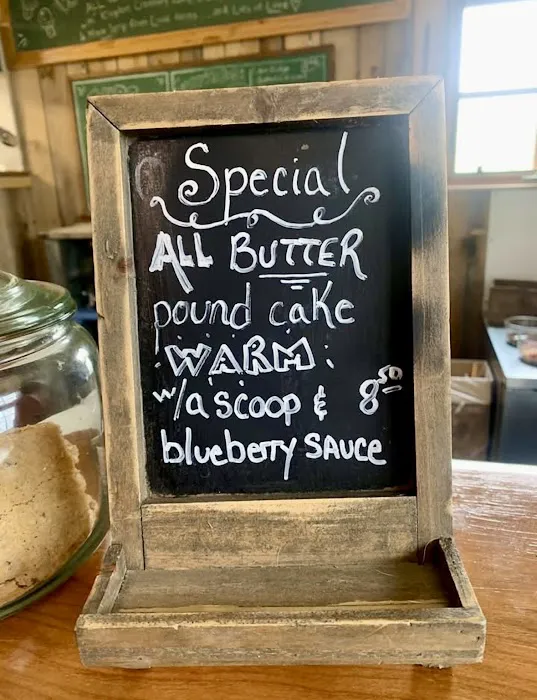 Special
ALL BUTTER
pound cake
WARM
w/a scoop & 8.50
blueberry SAUCE